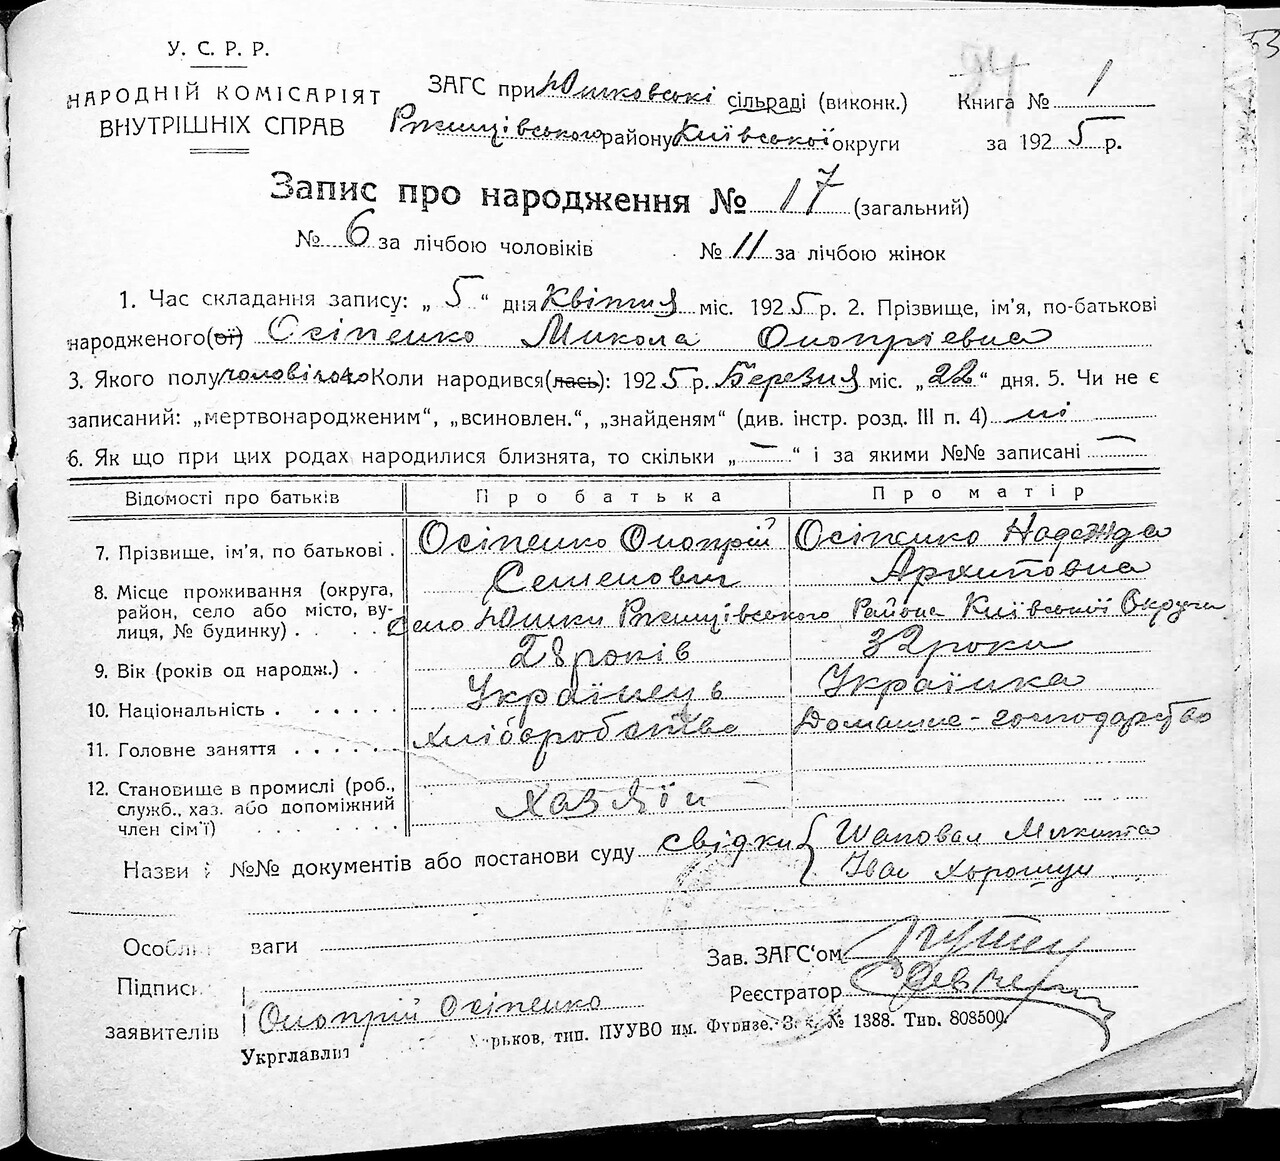 У. С. Р. Р.
НАРОДНІЙ КОМІСАРІЯТ
ВНУТРІШНІХ СПРАВ
ЗАГС при Юшковскі сільраді (виконк.)
Ржищівського району Київської округи
Книга № 1
за 1925 р.
Запис про народження № 17 (загальний)
№ 6 за лічбою чоловіків № 11 за лічбою жінок
1. Час складання запису: „ 5 “ дня Квітня міс. 1925 р. 2. Прізвище, ім'я, по-батькові
народженого(ої) Осіпенко Микола Онопрієвич
3. Якого полу чоловічого Коли народився(лась): 1925 р. Березня міс. „22“ дня. 5. Чи не є
записаний: „мертвонародженим“, „всиновлен.“, „знайденям“ (див. інстр. розд. III п. 4) ні
6. Як що при цих родах народилися близнята, то скільки „ — “ і за якими №№ записані —
Відомості про батьків Про батька Про матір
7. Прізвище, ім'я, по батькові . Осіпенко Онопрій Осіпенко Надежда
Семенович Архиповна
8. Місце проживання (округа,
район, село або місто, ву-
лиця, № будинку) . . . . Село Юшки Ржищівського Района Київської Округи
9. Вік (років од народж.) . 28 років 32 роки
10. Національність . . . . . . Українець Українка
11. Головне заняття . . . . . . Хліборобство Домашнє-господарство
12. Становище в промислі (роб.,
служб., хаз. або допоміжний
член сім'ї) . . . . . . . Хазяїн
Назви і №№ документів або постанови суду свідки { Шаповал Микита
Іван
Особл ваги
Зав. ЗАГС'ом
Підписи
Реєстратор
заявителів Онопрій Осіпенко
Укрглавліт Харьков, тип. ПУУВО им. Фрунзе. Зак. № 1388. Тир. 808500.